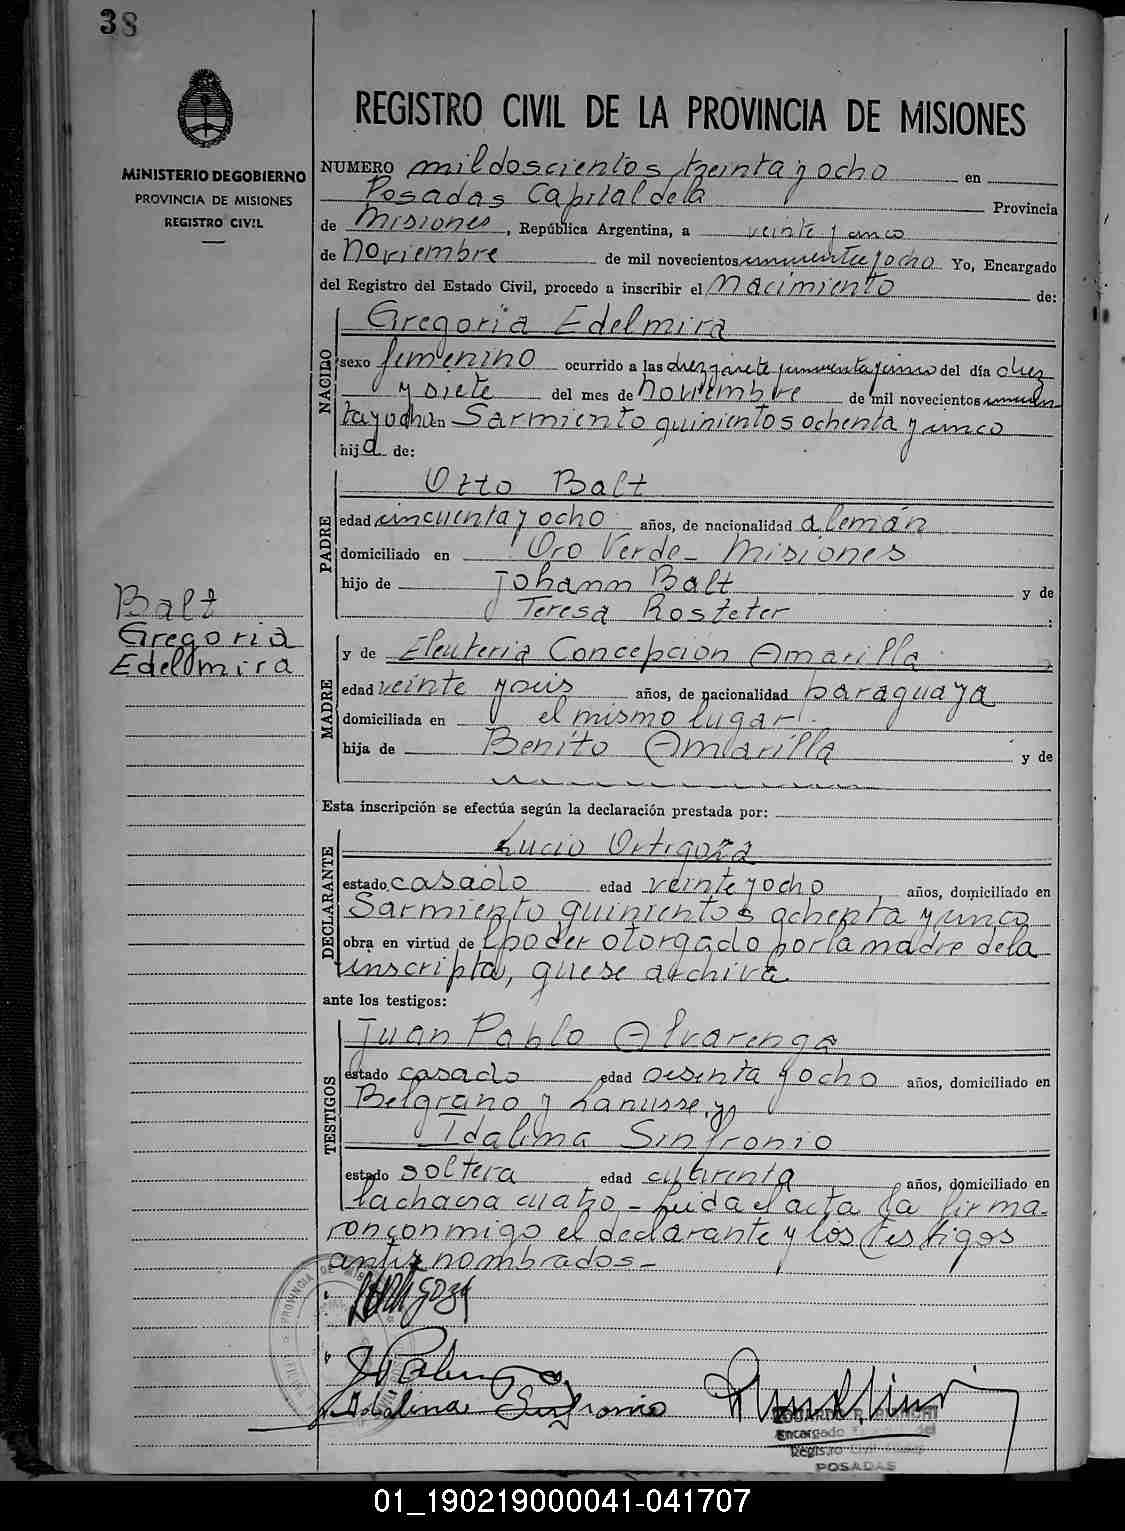 38
MINISTERIO DE GOBIERNO
PROVINCIA DE MISIONES
REGISTRO CIVIL
Balt
Gregoria
Edelmira
REGISTRO CIVIL DE LA PROVINCIA DE MISIONES
NUMERO mil doscientos treinta y ocho en
Posadas Capital de la Provincia
de Misiones, República Argentina, a veinte y cinco
de Noviembre de mil novecientos cincuenta y ocho Yo, Encargado
del Registro del Estado Civil, procedo a inscribir el Nacimiento de:
NACIDO
Gregoria Edelmira
sexo femenino ocurrido a las diez y siete y cincuenta y cinco del día diez
y siete del mes de Noviembre de mil novecientos cincuen
ta y ocho en Sarmiento quinientos ochenta y cinco
hija de:
PADRE
Otto Balt
edad cincuenta y ocho años, de nacionalidad alemán
domiciliado en Oro Verde - Misiones
hijo de Johann Balt y de
Teresa Rosteter :
MADRE
y de Eleuteria Concepcion Amarilla
edad veinte y seis años, de nacionalidad paraguaya
domiciliada en el mismo lugar.
hija de Benito Amarilla y de
Esta inscripción se efectúa según la declaración prestada por:
DECLARANTE
Lucio Ortigoza
estado casado edad veinte y ocho años, domiciliado en
Sarmiento quinientos ochenta y cinco
obra en virtud del poder otorgado por la madre de la
inscripta, que se archiva
ante los testigos:
TESTIGOS
Juan Pablo Alvarenga
estado casado edad sesenta y ocho años, domiciliado en
Belgrano y Lanusse y
Idalina Sinfronio
estado soltera edad cuarenta años, domiciliado en
la chacra cuatro - Leida el acta la firma-
ron conmigo el declarante y los testigos
antes nombrados -
Idalina Sinfronio
EDUARDO R. BIANCHI
Encargado del
Registro Civil
POSADAS
01_190219000041-041707